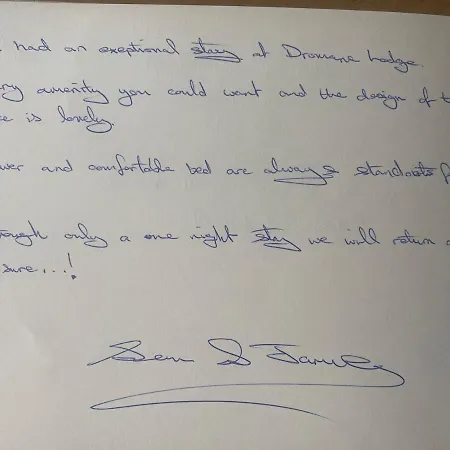 had an exceptional stay at Dromane Lodge.
ry amenity you could want and the design of t
e is lovely.
wer and comfortable bed are always standouts f
rough only a one night stay we will return
sure...!